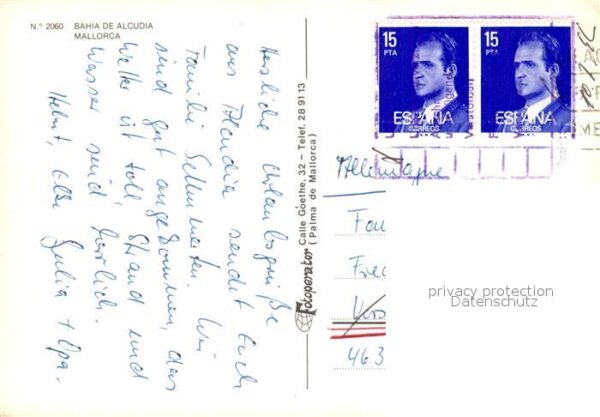 N.º 2060 BAHIA DE ALCUDIA
MALLORCA
Herzliche Urlaubsgrüße
aus Alcudia sendet Euch
Familie. Wir
sind gut angekommen, das
Wetter ist toll, Strand und
Wasser sind herrlich.
Helmut, Else Julia + Opa.
Fotoperator Calle Goethe, 32 – Telef. 28 91 13
(Palma de Mallorca)
15
PTA
ESPAÑA
CORREOS
15
PTA
ESPAÑA
CORREOS
Allemagne
Fam
463
privacy protection
Datenschutz